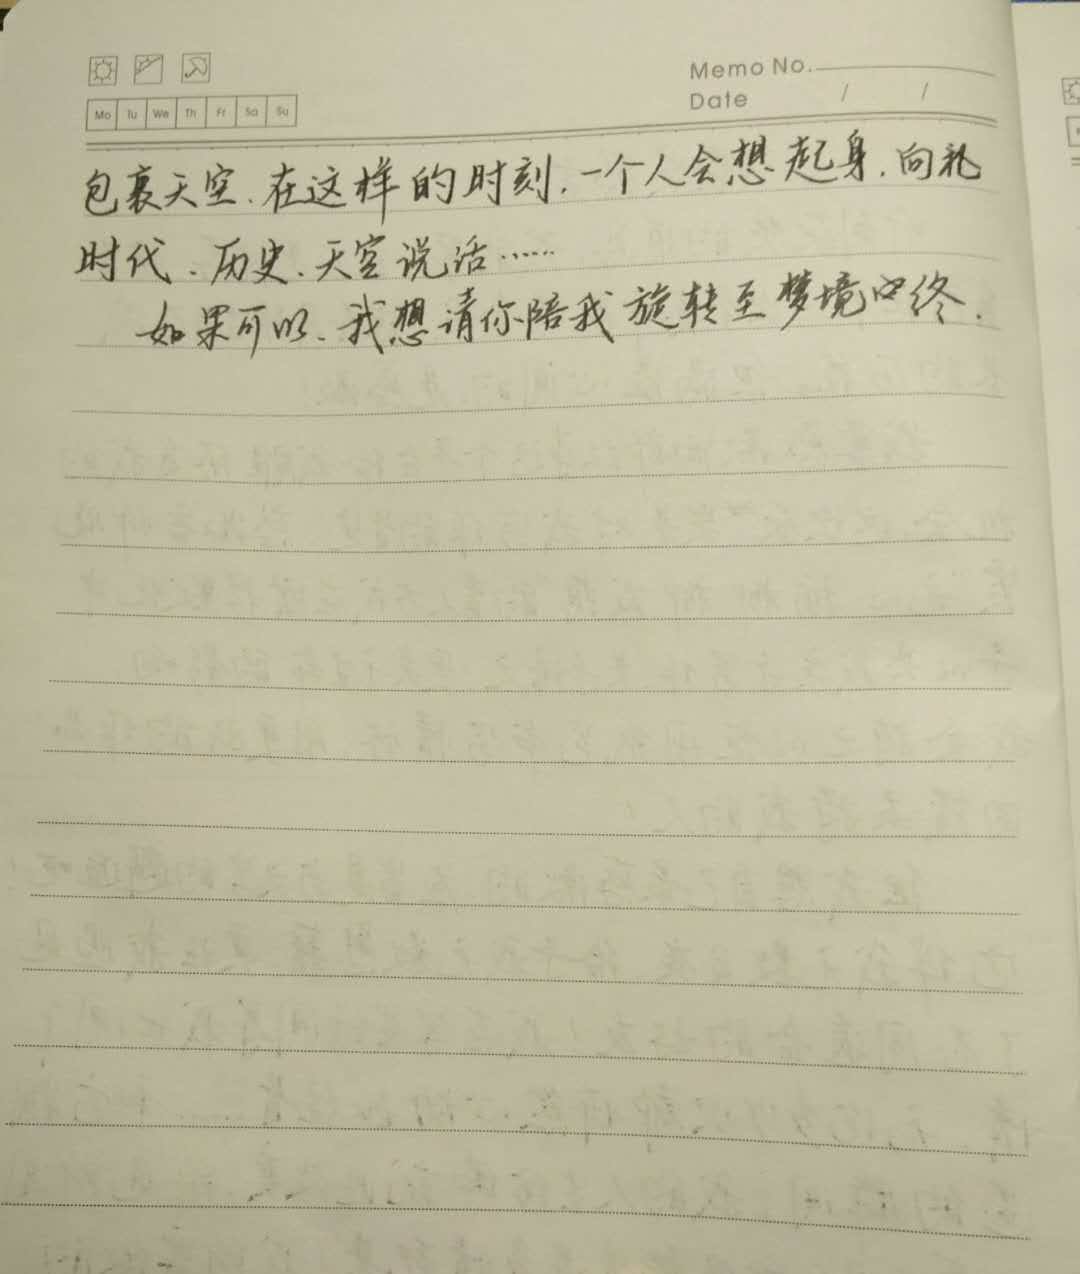 Memo No.
Date / /
Mo Tu We Th Fr Sa Su
包裹天空.在这样的时刻,一个人会想起身,向礼
时代、历史、天空说话……
如果可以、我想请你陪我旋转至梦境中终.